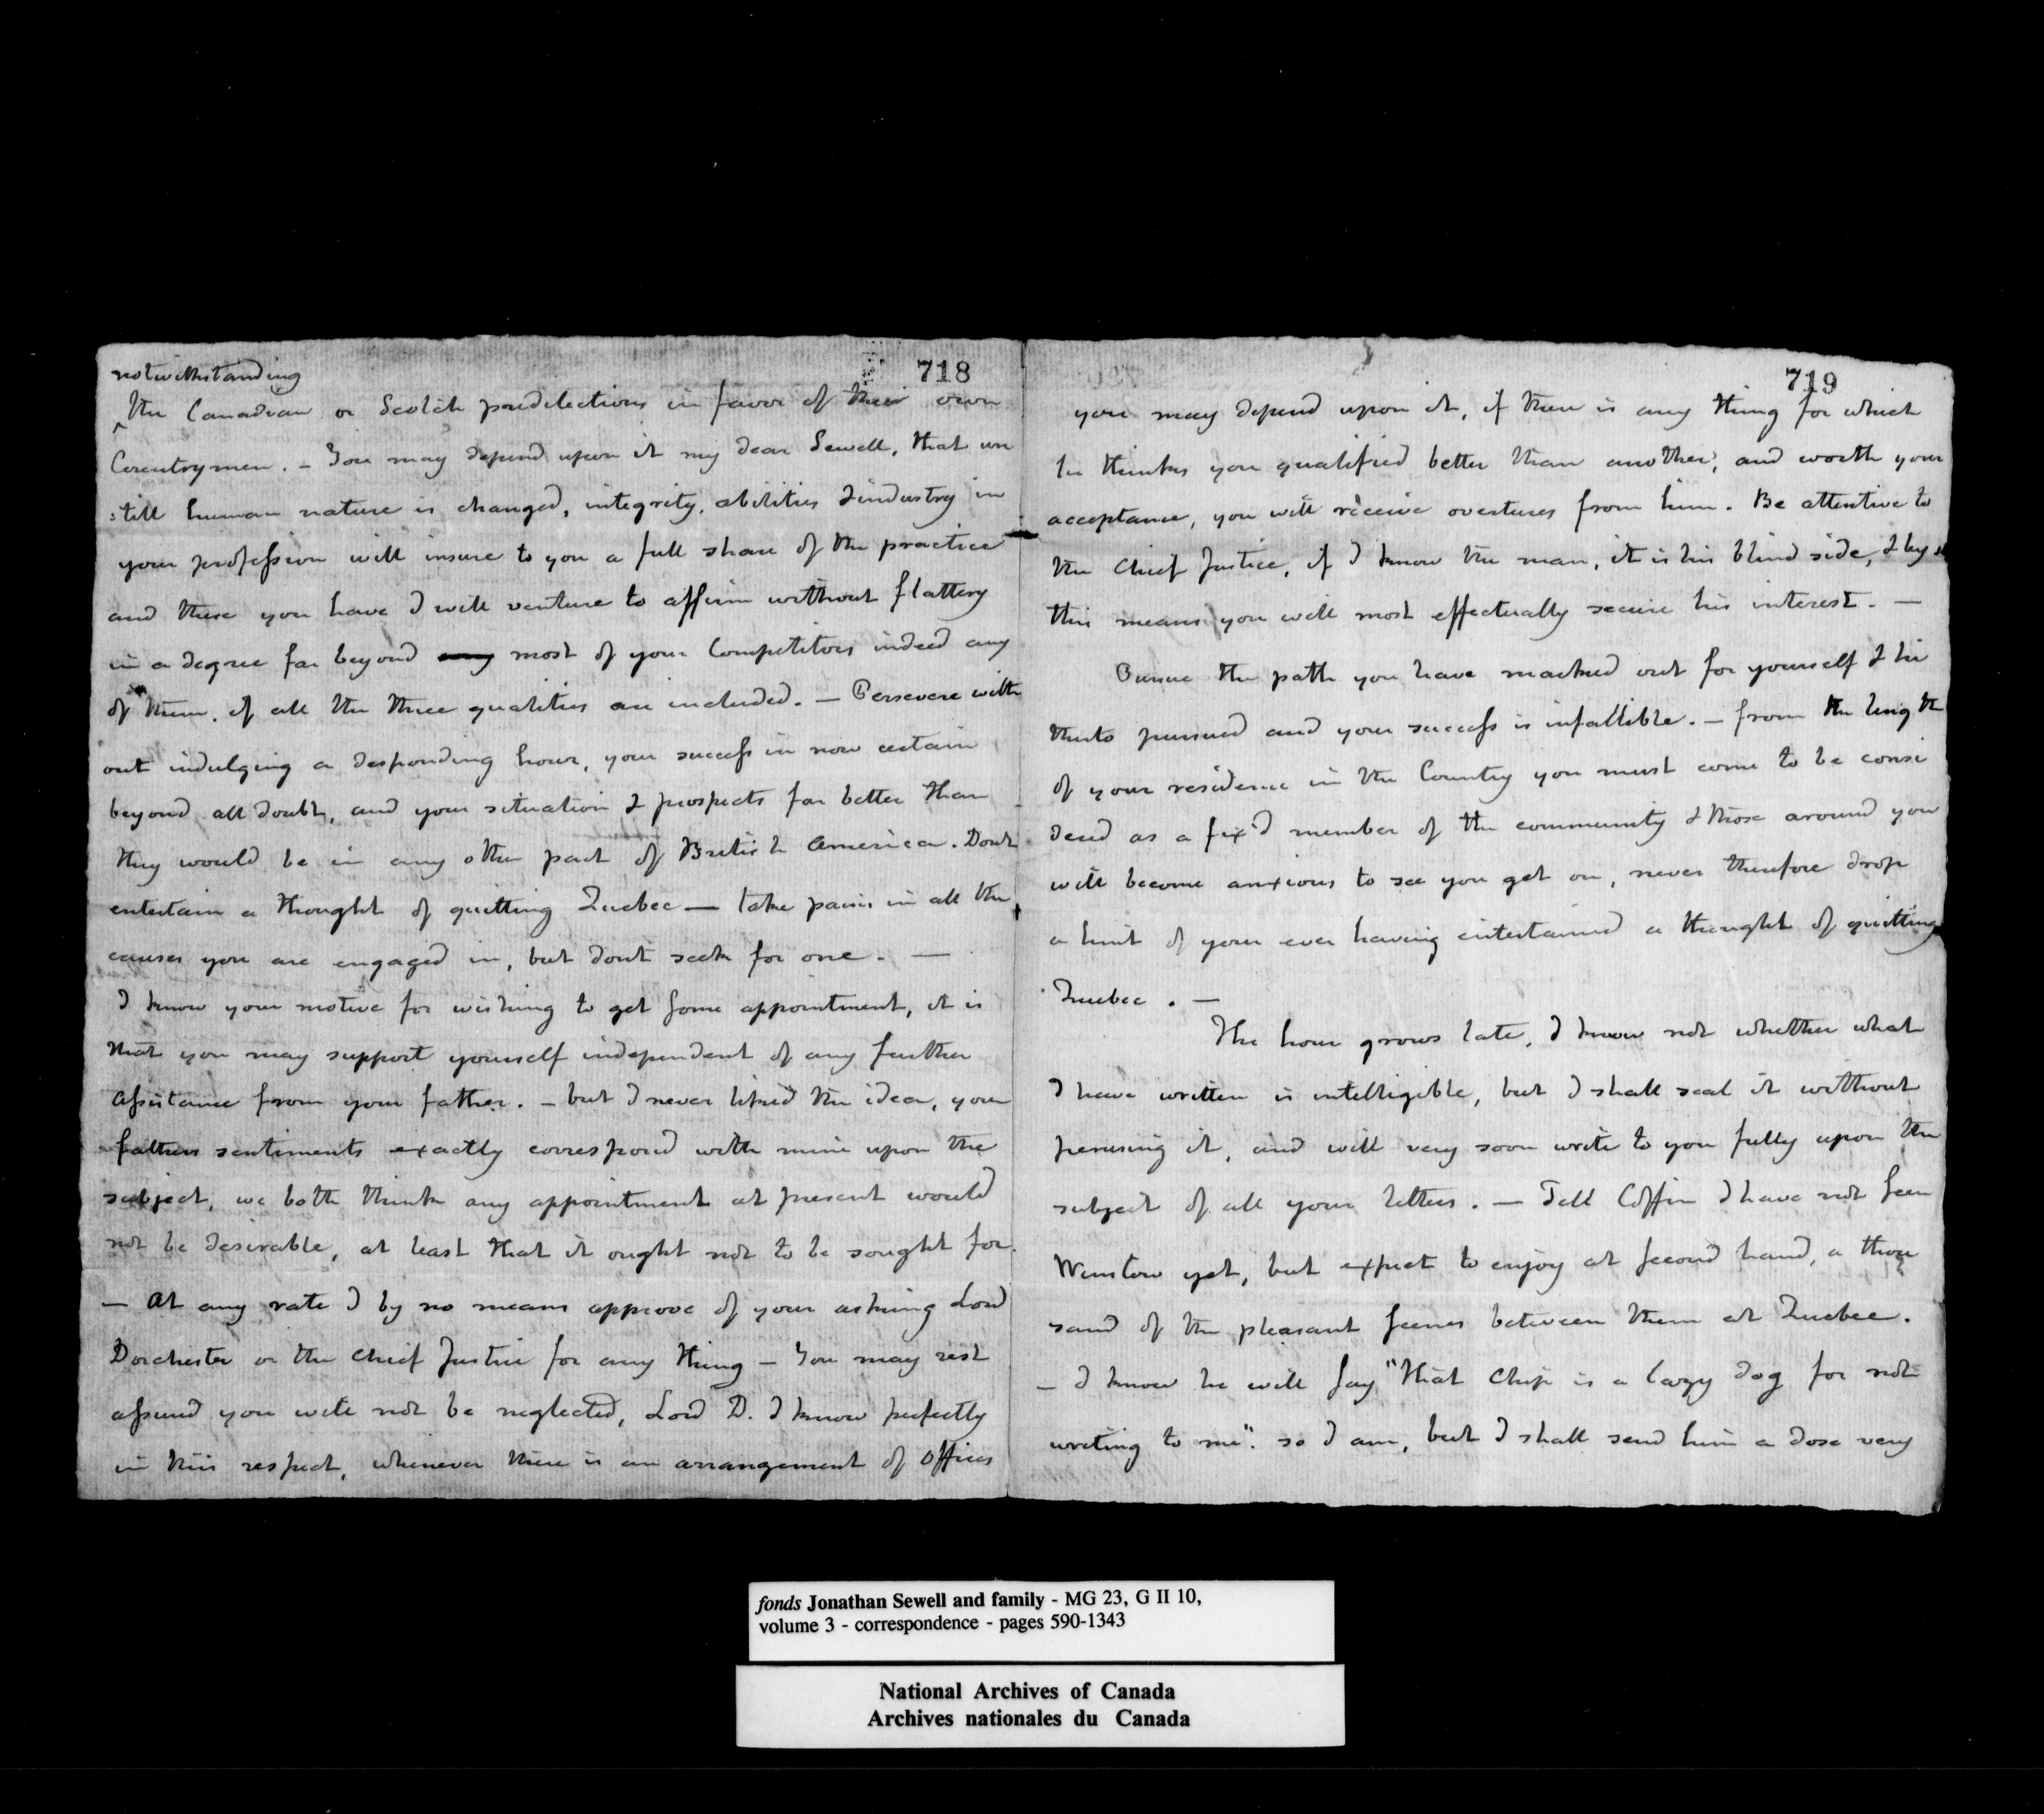 718
notwithstanding
^the Canadian or Scotch predilections in favor of their own
Countrymen. - You may depend upon it my dear Sewell, that un
:till human nature is changed, integrity, abilities & industry in
your profession will insure to you a full share of the practice
and these you have I will venture to affirm without flattery
in a degree far beyond any most of your Competitors indeed any
of them, if all the three qualities are included. — Persevere with
out indulging a desponding hour, your success in now certain
beyond all doubt, and your situation & prospects far better than
they would be in any other part of British America. Dont
entertain a thought of quitting Quebec — take pains in all the
causes you are engaged in, but dont seek for one. —
I know your motive for wishing to get some appointment, it is
that you may support yourself independent of any further
assistance from your father. - but I never liked the idea, your
fathers sentiments exactly correspond with mine upon the
subject, we both think any appointment at present would
not be desirable, at least that it ought not to be sought for.
— At any rate I by no means approve of your asking Lord
Dorchester or the Chief Justice for any thing — You may rest
assured you will not be neglected, Lord D. I know perfectly
in this respect, whenever there is an arrangement of Offices
719
you may depend upon it, if there is any thing for which
he thinks you qualified better than another, and worth your
acceptance, you will receive overtures from him. Be attentive to
the Chief Justice, if I know the man, it is his blind side, & by
this means you will most effectually secure his interest. —
Pursue the path you have marked out for yourself & hi
therto pursued and your success is infallible. — from the length
of your residence in the Country you must come to be consi
dered as a fix'd member of the community & those around you
will become anxious to see you get on, never therefore drop
a hint of your ever having entertained a thought of quitting
Quebec. —
The hour grows late, I know not whether what
I have written is intelligible, but I shall seal it without
perusing it, and will very soon write to you fully upon the
subject of all your letters. — Tell Coffin I have not seen
Winslow yet, but expect to enjoy at second hand, a thou
sand of the pleasant scenes between them at Quebec.
— I know he will say "that Chip is a lazy dog for not
writing to me". so I am, but I shall send him a dose very
fonds Jonathan Sewell and family - MG 23, G II 10,
volume 3 - correspondence - pages 590-1343
National Archives of Canada
Archives nationales du Canada